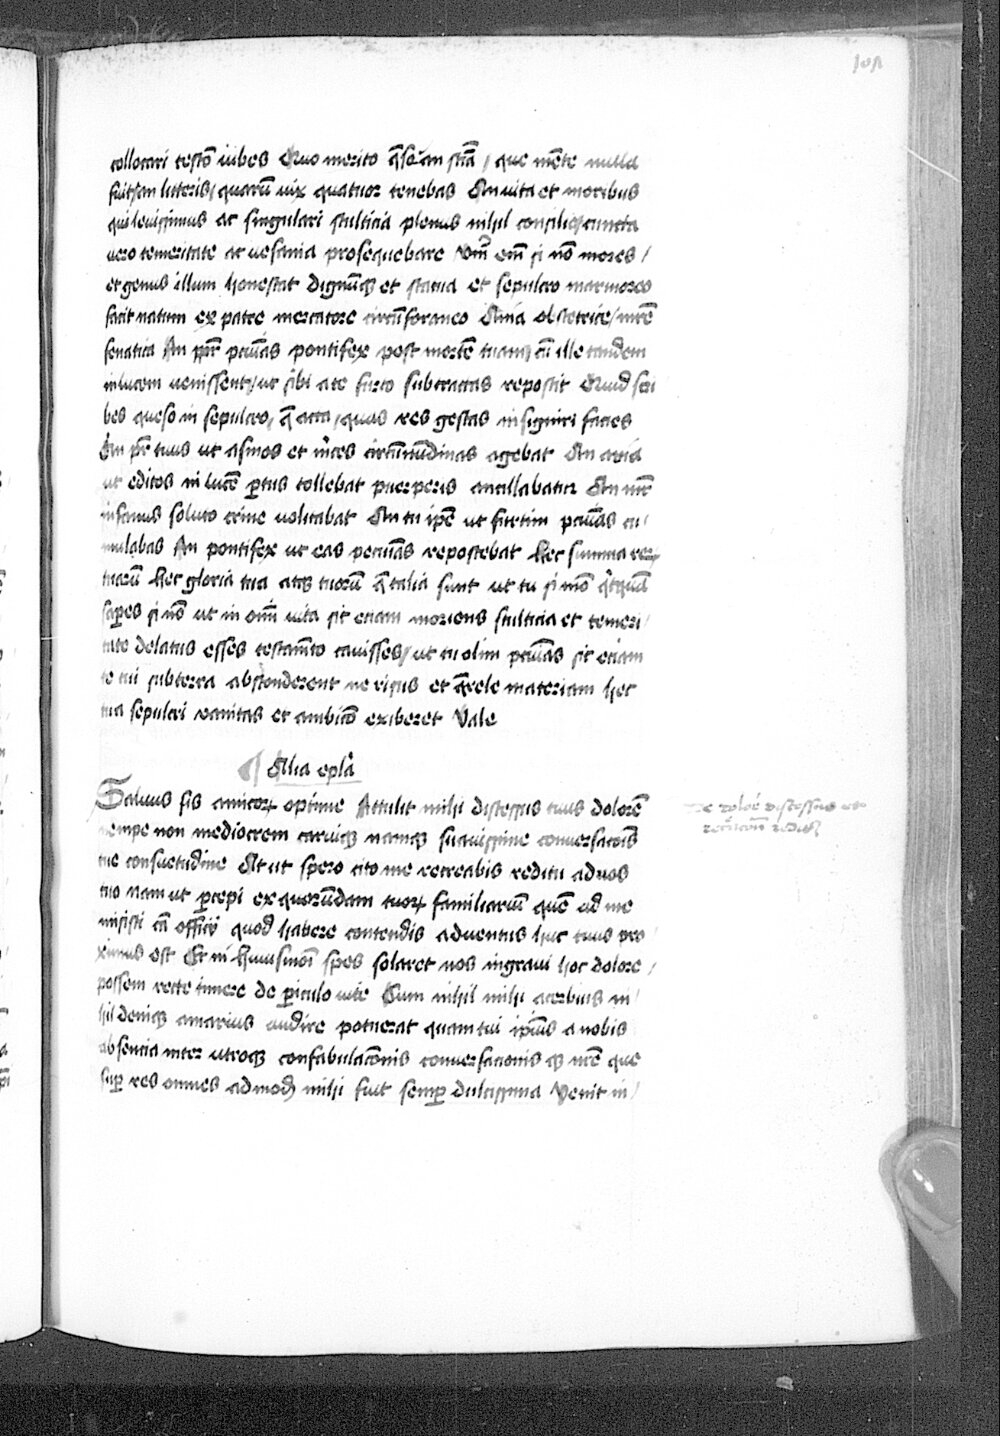 101
collocari testō iubes Quo merito q̄so an stīa / que mēte nulla
fuit / an litteris / quarū uix quatuor tenebas An uita et moribus
qui leuissimus ac singulari stulticia plenus nihil consilio / cuncta
uero temeritate ac uesania prosequebare Vnū em̄ si nō mores /
et genus illum honestat dignūqȝ et statua et sepulcro marmoreo
facit natum ex patre mercatore circūforaneo Auia obstetrice / mr̄e
fenatica An ppr̄ pecūias pontifex post mortē tuam / cū ille tandem
in lucem uenissent / ut sibi a te furto subtractas reposcit Quid scri
bes queso in sepulcro / q̄ acta / quas res gestas insigniri facies
An pr̄ tuus ut asinos et m̄ces circūnūdinas agebat An auia
ut editos in lucē ꝑtus tollebat puerperis ancillabatur An mr̄
insanus soluto crine uolitabat An tu ipē ut furtim pecūias cu /
mulabas An pontifex ut eas pecūias reposcebat Hec summa reꝝ
tuarū hec gloria tua atqȝ tuorū q̄ talia sunt ut tu si mō q̄cquā
saperes si nō ut in om̄i uita sic etiam moriens stulticia et temeri /
tate delatus esses testam̄to cauisses / ut tu olim pecūias sic etiam
te tui subterra absconderent ne risus et q̄rele materiam hec
tua sepulcri uanitas et ambicō exiberet Vale
¶ Alia epl̄a
Saluus sis amicoꝝ optime Attulit mihi discessus tuus dolorē
nempe non mediocrem caruiqȝ namqȝ suauissime conuersacōis
tue consuetudine At ut spero cito me recreabis reditu ad uos
tuo nam ut ꝑcepi ex quorūdam tuoꝝ familiariū quē ad me
misisti cā officij quod habere contendis aduentus huc tuus pro
ximus est Et ni huiusmōi spes solaret nos in graui hoc dolore /
possem recte timere de ꝑiculo uite Cum nihil mihi acerbius ni /
hil deniqȝ amarius audire potuerat quam tui ipīus a nobis
absencia inter utroqȝ confabulacōnis conuersacionis qȝ nr̄e que
suꝑ res omnes admodū mihi fuit semꝑ dulcissima Venit in /
De dolore discessus et